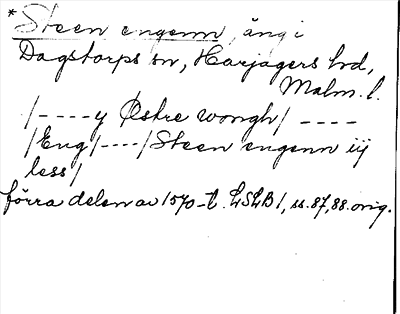 * Steen engenn, äng i
Dagstorps sn, Harjagers hd,
Malm. l.
/----y Østre wongh/ ----
/Eng/----/Steen engenn iij
less/
förra delen av 1570-t. LSLB 1, ss. 87, 88. orig.